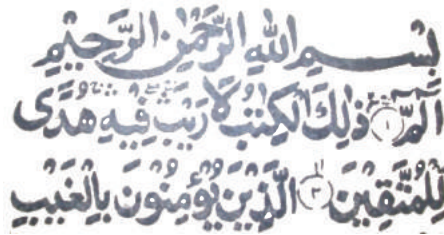 بِسْمِ اللهِ الرَّحْمٰنِ الرَّحِيْمِ
الٓمّٓ ۝١ ذٰلِكَ الْكِتٰبُ لَا رَيْبَ فِيْهِ هُدًى
لِّلْمُتَّقِيْنَ ۝٢ الَّذِيْنَ يُؤْمِنُوْنَ بِالْغَيْبِ